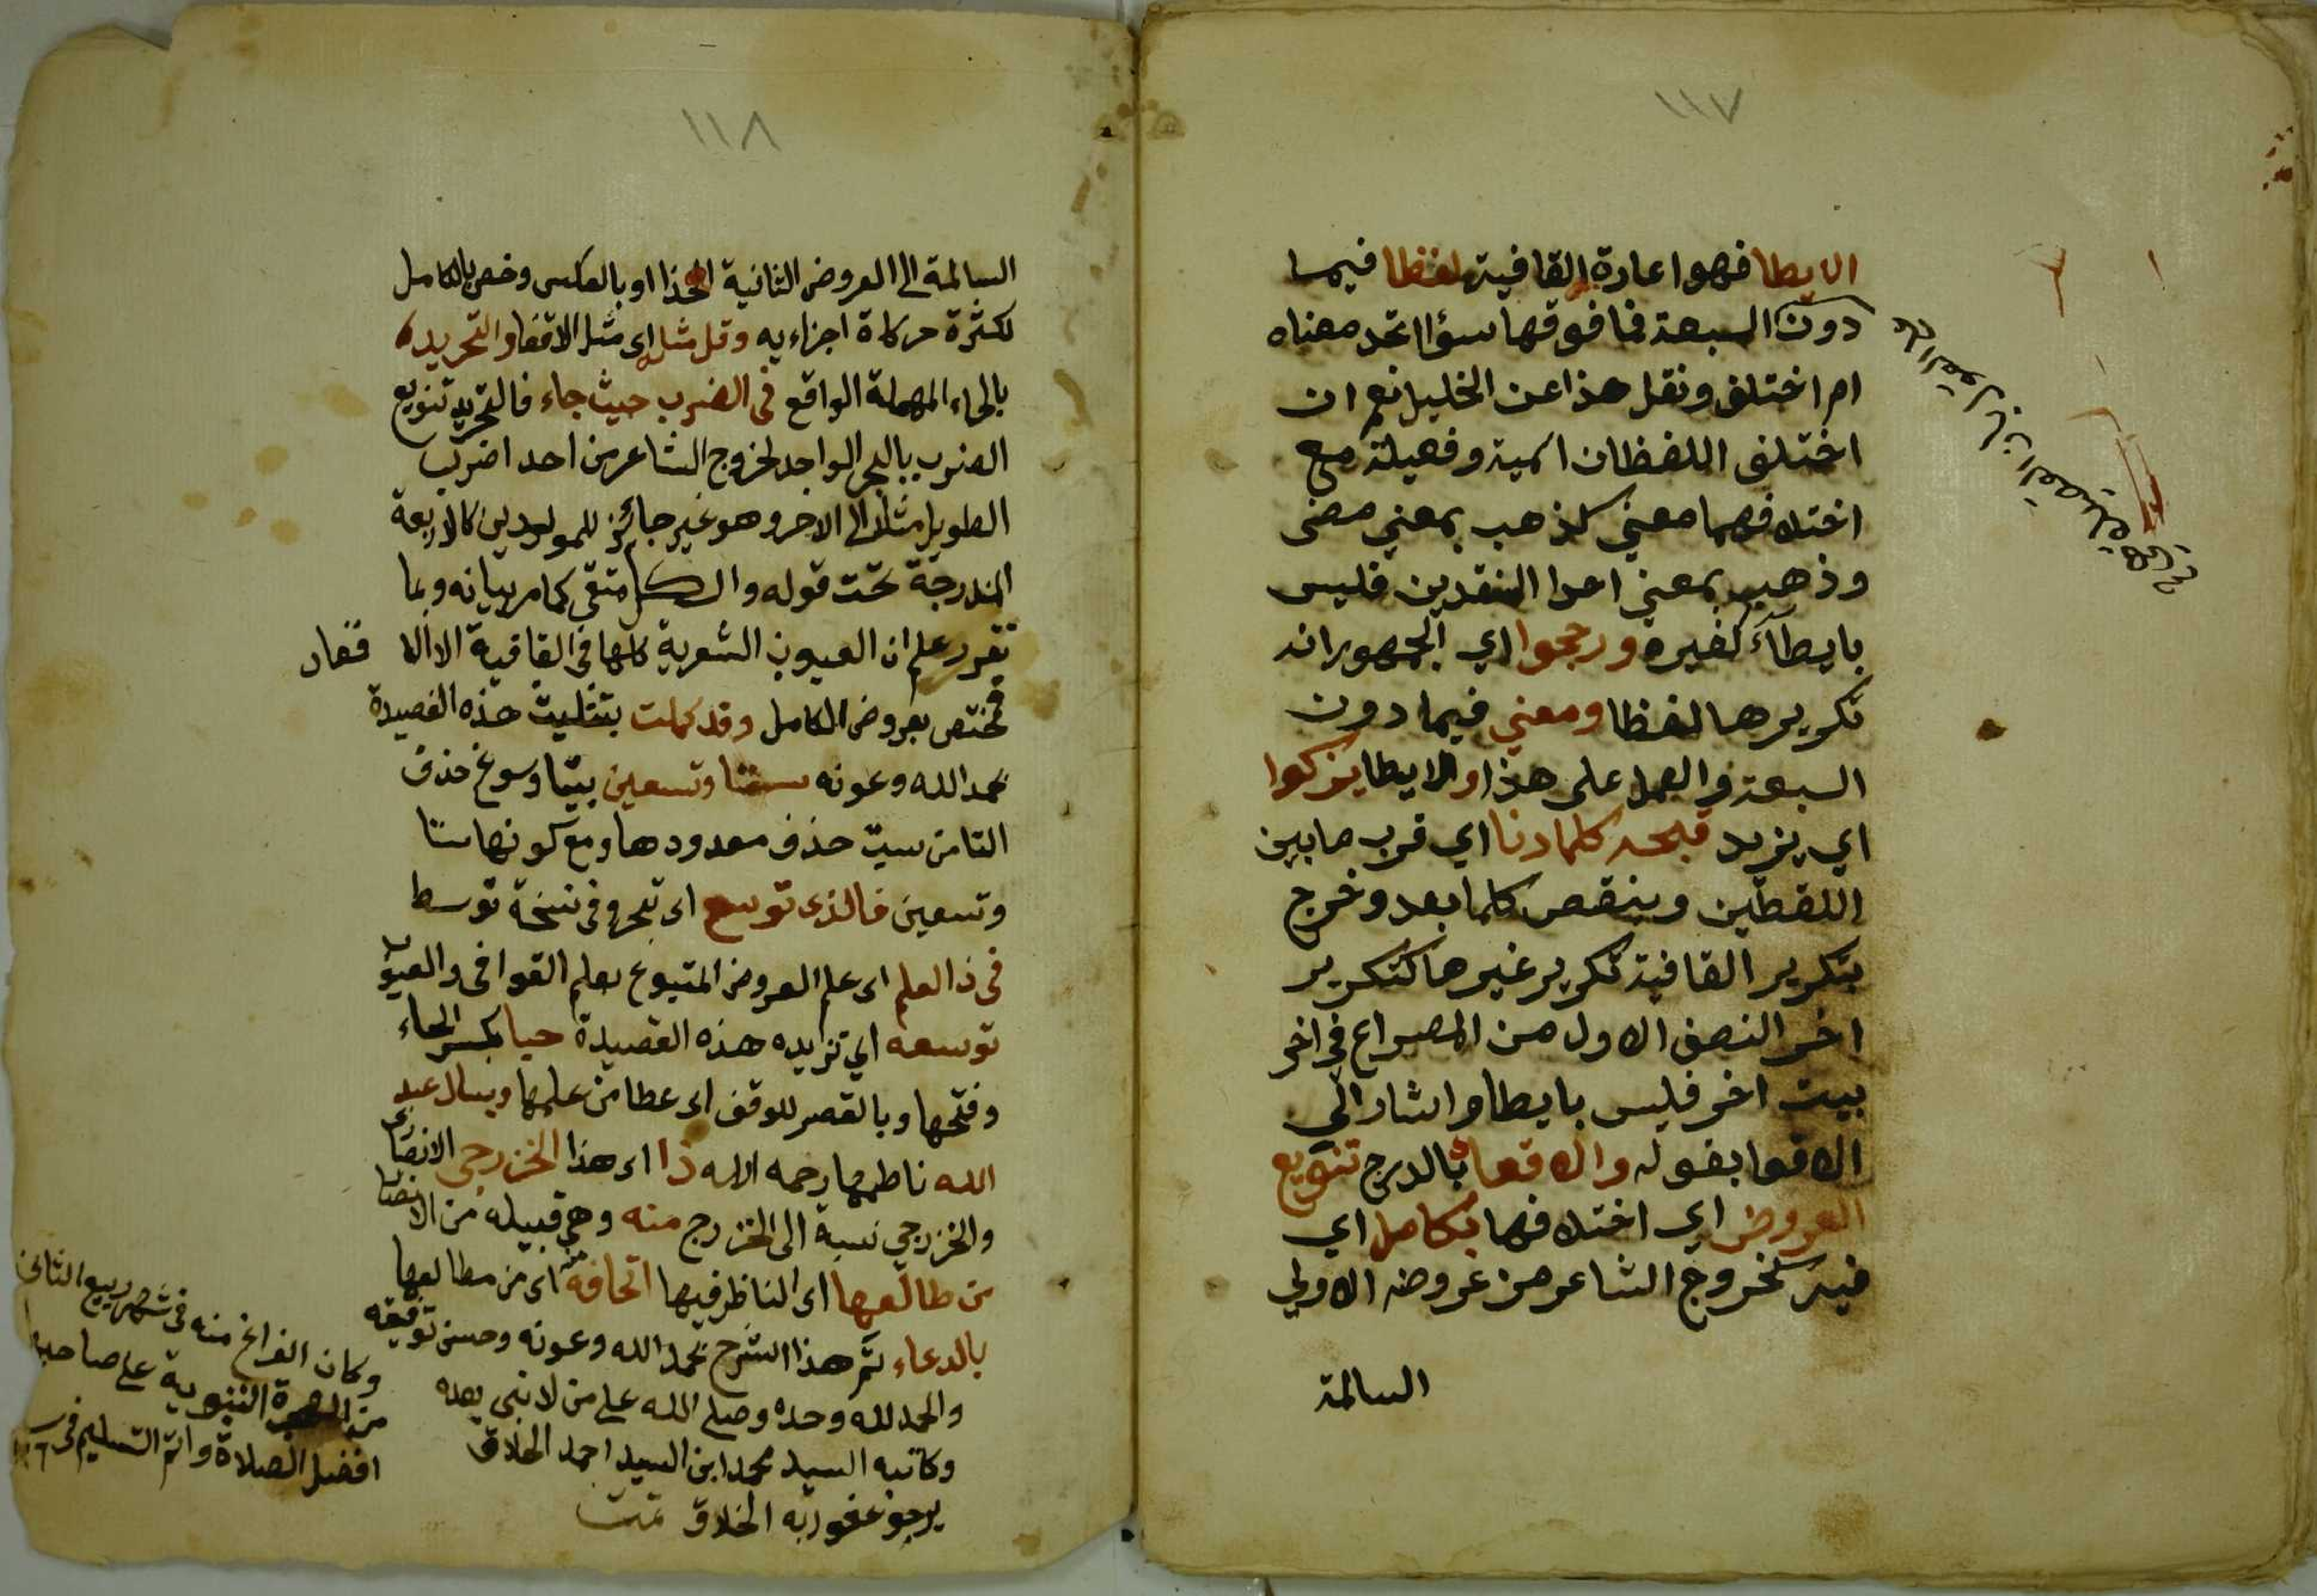 ١١٧
الايطا فهو اعادة القافية لفظا فيما
دون السبعة فما فوقها سؤا اتحد معناه
ام اختلف ونقل هذا عن الخليل نعم ان
اختلف اللفظان اسمية وفعيلة مع
اختلافهما معني كذهب بمعني مضى
وذهب بمعني احد النقدين فليس
بايطاء كغيره ورجحوا اي الجمهور انه
تكريرها لفظا ومعني فيما دون
السبعة والعمل على هذا والايطا يزكوا
اي يزيد قبحه كلما دنا اي قرب ما بين
اللفظين وينقص كلما بعد وخرج
بتكرير القافية تكرير غيرها كتكرير
اخر النصف الاول من المصراع في اخر
بيت اخر فليس بايطا واشار الي
الاقعا بقوله والاقعاء بالدرج تنويع
العروض اي اختلافها بكامل اي
فيه كخروج الشاعر من عروضه الاولي
السالمة
١١٨
السالمة الى العروض الثانية الحذا او بالعكس وخص بالكامل
لكثرة حركاة اجزاءيه وقل مثله اى مثل الاقعاد والتحريد
بالحاء المهملة الواقع فى الضرب حيث جاء فالتحريد تنويع
الضرب بالبحر الواحد لخروج الشاعر من احد اضرب
الطويل مثلا الى الاخر وهو غير جائز للمولدين كالاربعة
المندرجة تحت قوله والكل متقى كما مر بيانه وبما
تقرر علم ان العيوب الشعرية كلها فى القافية الا الاقعاد
فمختص بعروض الكامل وقد كملت بتثليث هذه القصيدة
بحمد الله وعونه ستا وتسعين بيتا وسوغ حذف
التا من ست حذف معدودها ومع كونها ستا
وتسعين فالذى توسع اى تبحر وفى نسخة توسط
فى ذا العلم اى علم العروض المتبوع بعلم القوافى والعيوب
توسعه اي تزايده هذه القصيدة حبا بكسر الحاء
وفتحها وبالقصر للوقف اى عطا من علمها ويسال عبد
الله ناظمها رحمه الله ذا اى هذا الخزرجى الانصارى
والخزرجي نسبة الى الخزرج منه وهي قبيله من الانصار
من طالعها اى الناظر فيها اتحافه منه اى من مطالعها
بالدعاء تم هذا الشرح بحمد الله وعونه وحسن توفيقه
والحمد لله وحده وصلى الله على من لا نبى بعده
وكاتبه السيد محمد ابن السيد احمد الحلاق
يرجو عفو ربه الخلاق تمت
وكان الفراغ منه فى شهر ربيع الثانى
من الهجرة النبوية على صاحبها
افضل الصلاة واتم التسليم فى